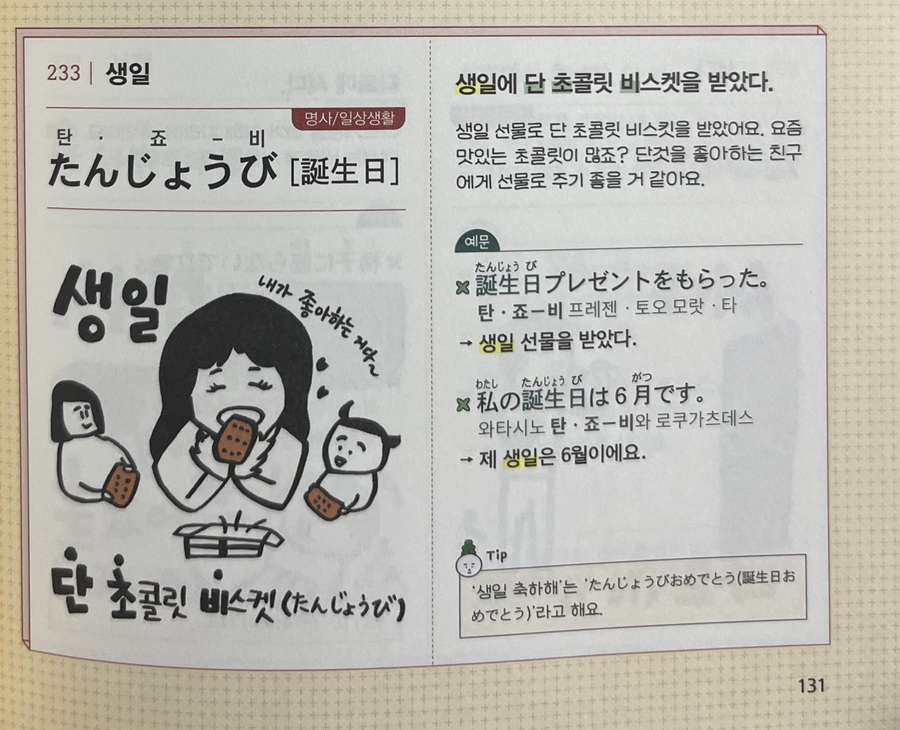 233 | 생일
명사/일상생활
탄 죠 - 비
たんじょうび [誕生日]
생일
내가 좋아하는 거당
단 초콜릿 비스켓 (たんじょうび)
생일에 단 초콜릿 비스켓을 받았다.
생일 선물로 단 초콜릿 비스킷을 받았어요. 요즘
맛있는 초콜릿이 많죠? 단것을 좋아하는 친구
에게 선물로 주기 좋을 거 같아요.
예문
たんじょう び
誕生日プレゼントをもらった。
탄・죠-비 프레젠・토오 모랏・타
→ 생일 선물을 받았다.
わたし たんじょう び がつ
私の誕生日は6月です。
와타시노 탄・죠-비와 로쿠가츠데스
→ 제 생일은 6월이에요.
Tip
'생일 축하해'는 'たんじょうびおめでとう(誕生日お
めでとう)'라고 해요.
131